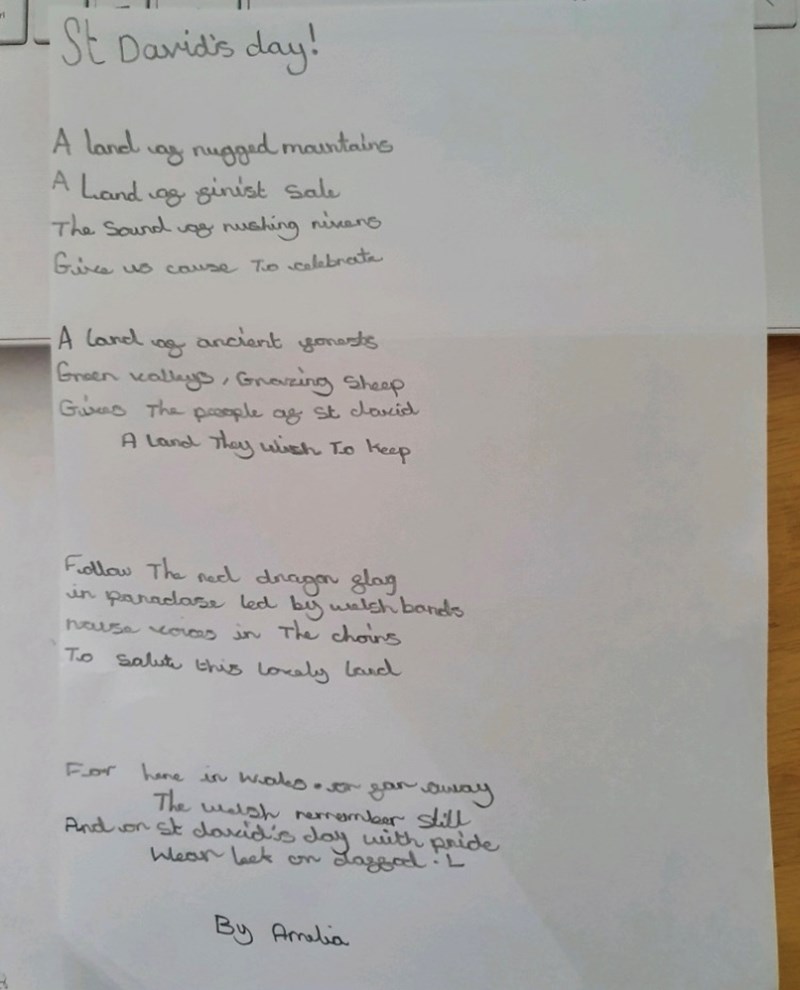 St David's day!
A land of rugged mountains
A Land of finist Sale
The Sound of rushing rivers
Give us cause To celebrate
A land of ancient forests
Green valleys, Grazing Sheep
Gives The people of St david
A land They wish To keep
Follow The red dragon flag
in paradase led by welsh bands
raise voices in The choirs
To salute this lovely land
For here in wales or far away
The welsh remember still
And on St david's day with pride
Wear leek or
By Amelia